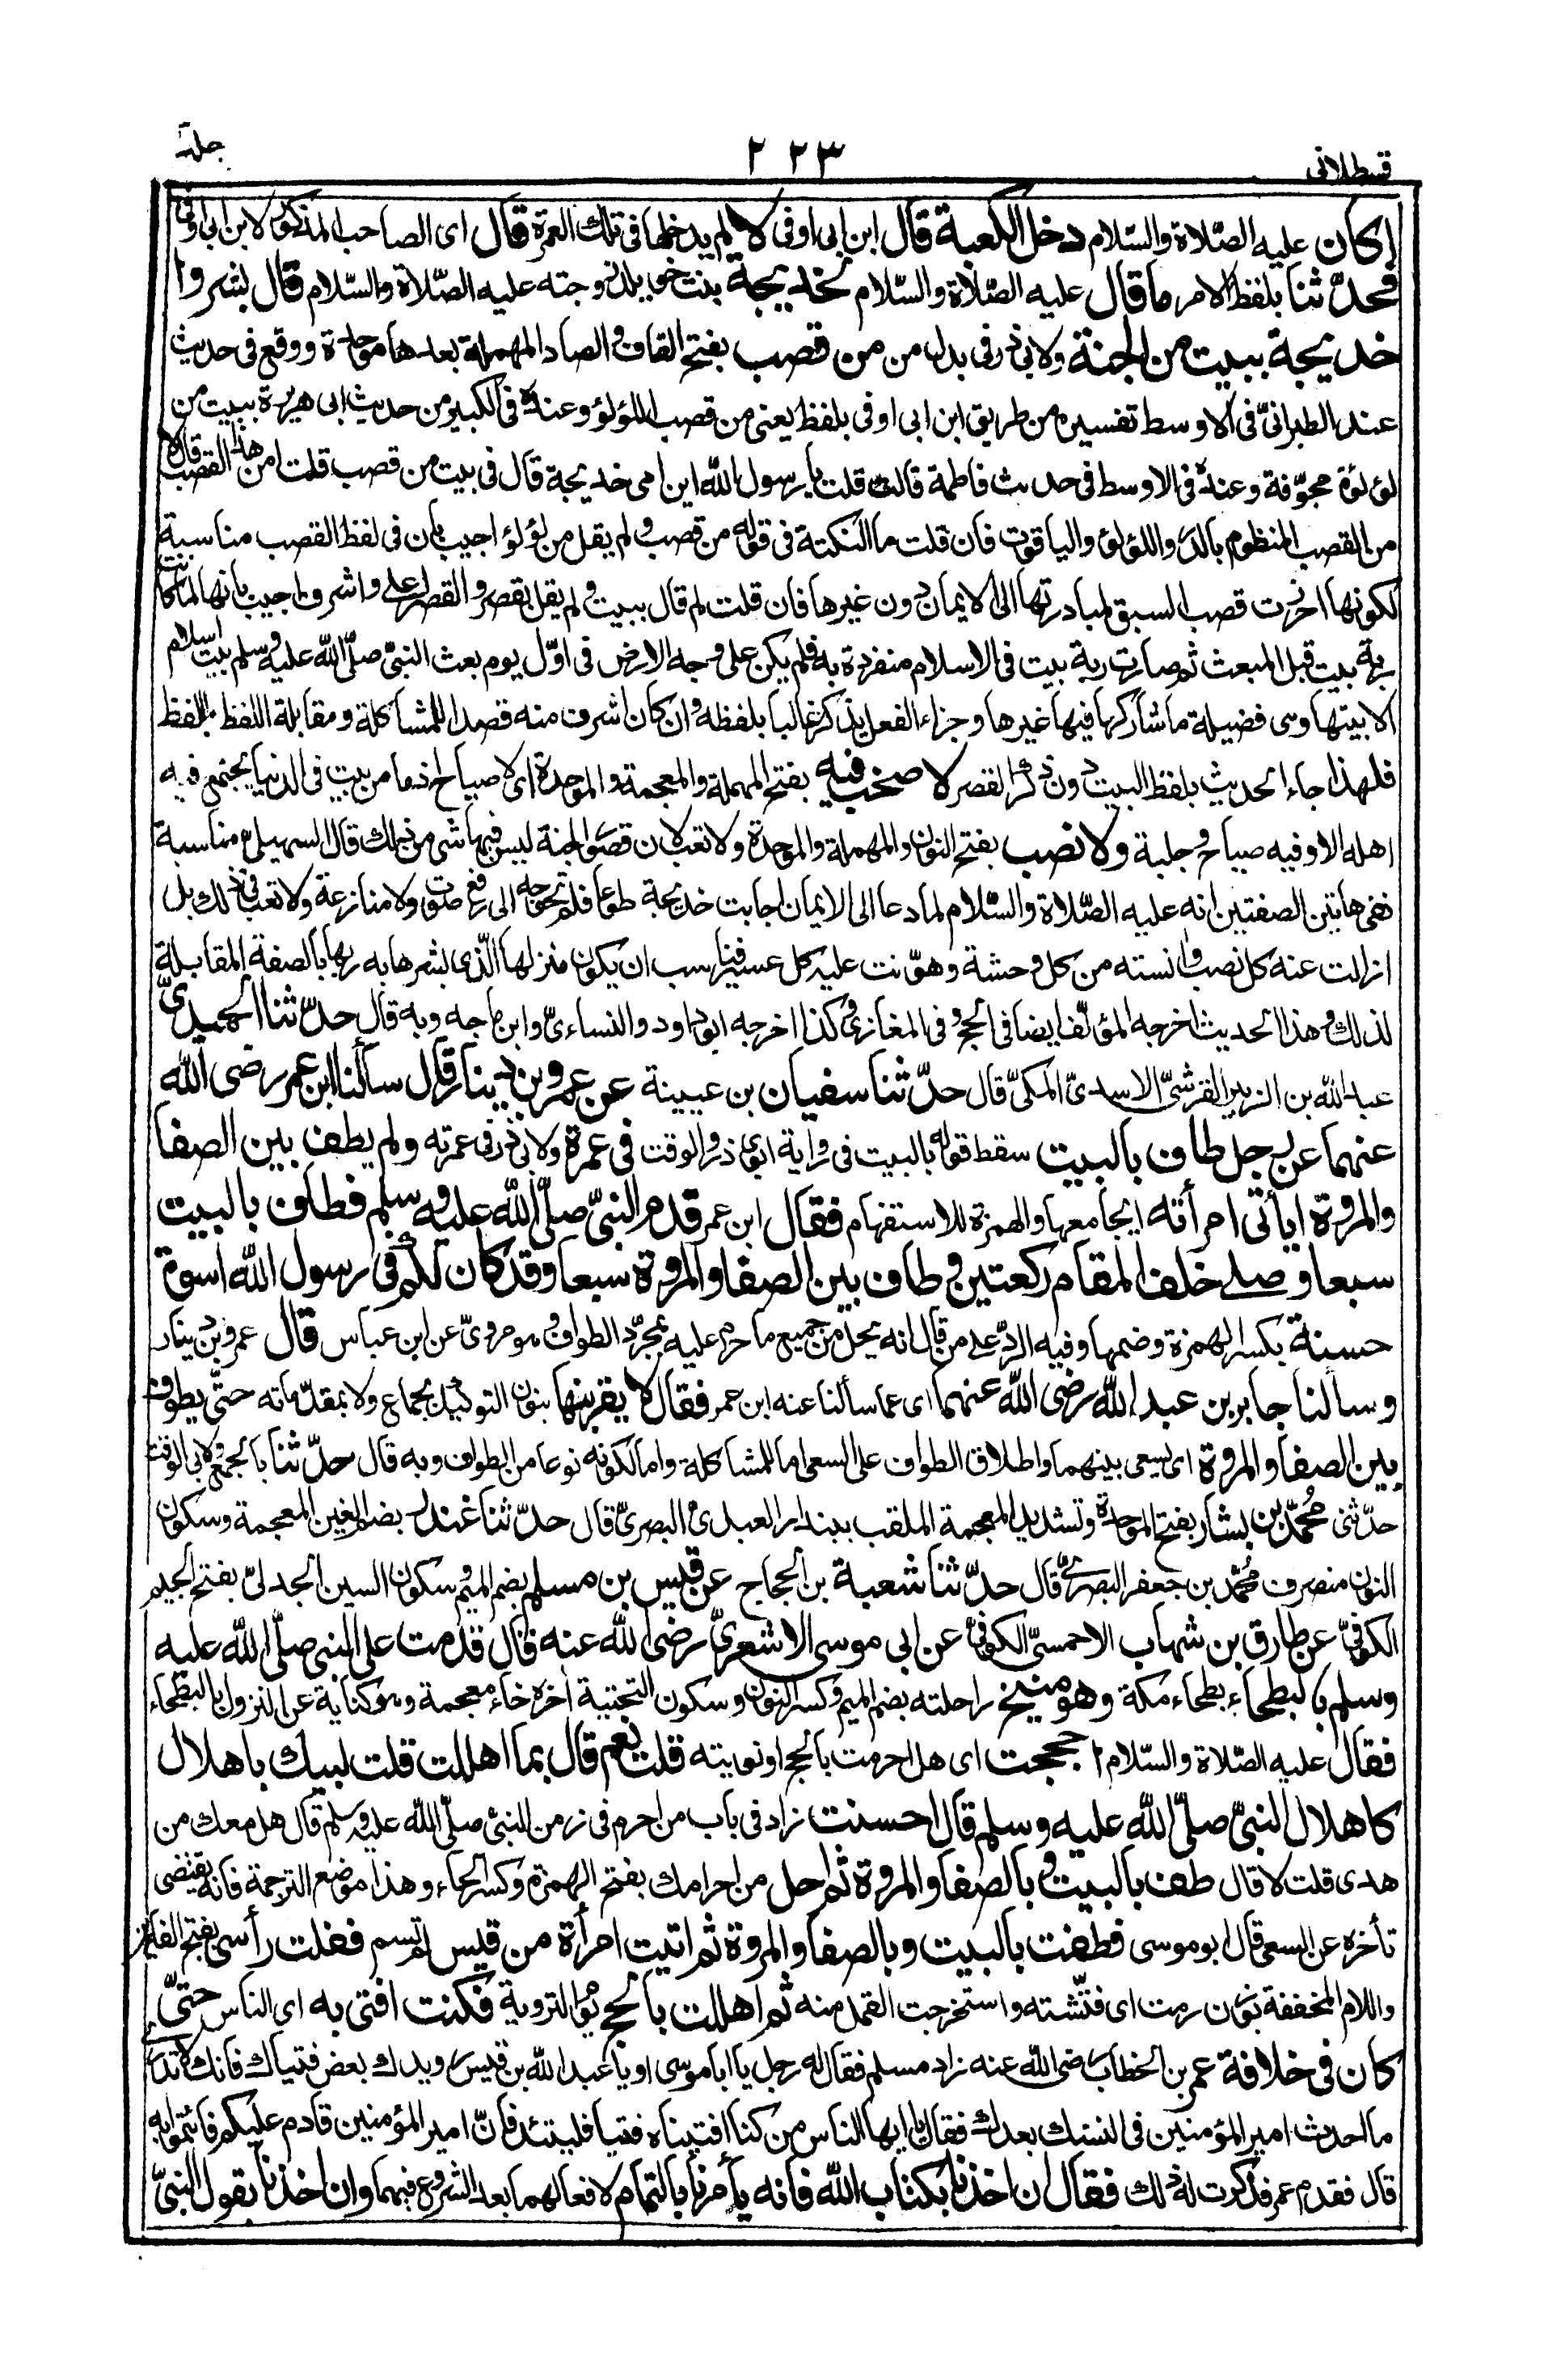 قسطلانی ٢٢٣ جلد
اكان عليه الصّلاة والسّلام دخل الكعبة قال ابن ابى اوفى لا لم يدخلها فى تلك العمرة قال اى الصاحب المذكور لابن ابى اوفى
فحدّثنا بلفظ الامر ما قال عليه الصّلاة والسّلام لخديجة بنت خويلد زوجته عليه الصّلاة والسّلام قال بشروا
خديجة ببيت من الجنة ولابى ذر فى بدل من من قصب بفتح القاف والصاد المهملة بعدها موحدة ووقع فى حديث
عند الطبرانىّ فى الاوسط تفسيره من طريق ابن ابى اوفى بلفظ يعنى من قصب اللؤلؤ وعنده فى الكبير من حديث ابى هريرة ببيت من
لؤلؤة مجوّفة وعنده فى الاوسط فى حديث فاطمة قالت قلت يا رسول الله اين امى خديجة قال فى بيت من قصب قلت امن هذا القصب قال لا
من القصب المنظوم بالدر واللؤلؤ والياقوت فان قلت ما النكتة فى قوله من قصب ولم يقل من لؤلؤ اجيب بان فى لفظ القصب مناسبة
لكونها احرزت قصب السبق لمبادرتها الى الايمان دون غيرها فان قلت لم قال ببيت ولم يقل بقصر والقصر اعلى واشرف اجيب بانها لما كانت
ربة بيت قبل المبعث ثم صارت ربة بيت فى الاسلام منفردة به فلم يكن على وجه الارض فى اوّل يوم بعث النبىّ صلّى الله عليه وسلم بيت اسلام
الا بيتها وهى فضيلة ما شاركها فيها غيرها وجزاء الفعل يذكر غالبا بلفظه وان كان اشرف منه قصدا للمشاكلة ومقابلة اللفظ باللفظ
فلهذا جاء الحديث بلفظ البيت دون ذكر القصر لا صخب فيه بفتح المهملة والمعجمة والموحدة اى لا صياح اذ ما من بيت فى الدنيا يجتمع فيه
اهله الا وفيه صياح وجلبة ولا نصب بفتح النون والمهملة والموحدة ولا تعب لان قصور الجنة ليس فيها شىء من ذلك قال السهيلىّ مناسبة
نفى هاتين الصفتين انه عليه الصّلاة والسّلام لما دعا الى الايمان اجابت خديجة طوعا فلم تحوجه الى رفع صوت ولا منازعة ولا تعب فى ذلك بل
ازالت عنه كل نصب وانسته من كل وحشة وهوّنت عليه كل عسير فناسب ان يكون منزلها الّذى بشرها به ربها بالصفة المقابلة
لذلك وهذا الحديث اخرجه المؤلف ايضا فى الحج وفى المغازى وكذا اخرجه ابو داود والنساءىّ وابن ماجه وبه قال حدّثنا الحميدىّ
عبد الله بن الزبير القرشىّ الاسدىّ المكىّ قال حدّثنا سفيان بن عيينة عن عمرو بن دينار قال سألنا ابن عمر رضى الله
عنهما عن رجل طاف بالبيت سقط قوله بالبيت فى رواية ابوى ذر والوقت فى عمرة ولابى ذر فى عمرته ولم يطف بين الصفا
والمروة ايأتى امرأته ايجامعها والهمزة للاستفهام فقال ابن عمر قدم النبىّ صلّى الله عليه وسلم فطاف بالبيت
سبعا وصلى خلف المقام ركعتين وطاف بين الصفا والمروة سبعا وقد كان لكم فى رسول الله اسوة
حسنة بكسر الهمزة وضمها وفيه الردّ على من قال انه يحل من جميع ما حرم عليه بمجرّد الطواف وهو مروىّ عن ابن عباس قال عمرو بن دينار
وسألنا جابر بن عبد الله رضى الله عنهما اى عما سألنا عنه ابن عمر فقال لا يقربنها بنون التوكيد بجماع ولا بمقدّماته حتّى يطوف
بين الصفا والمروة اى يسعى بينهما واطلاق الطواف على السعى اما للمشاكلة واما لكونه نوعا من الطواف وبه قال حدّثنا بالجمع ولابى الوقت
حدّثنى محمّد بن بشار بفتح الموحدة وتشديد المعجمة الملقب ببندار العبدىّ البصرىّ قال حدّثنا غندر بضم الغين المعجمة وسكون
النون منصرف محمّد بن جعفر البصرىّ قال حدّثنا شعبة بن الحجاج عن قيس بن مسلم بضم الميم وسكون السين الجدلىّ بفتح الجيم
الكوفىّ عن طارق بن شهاب الاحمسىّ الكوفىّ عن ابى موسى الاشعرىّ رضى الله عنه قال قدمت على النبى صلّى الله عليه
وسلم بالبطحاء بطحاء مكة وهو منيخ راحلته بضم الميم وكسر النون وسكون التحتية اخره خاء معجمة وهو كناية عن النزول بالبطحاء
فقال عليه الصّلاة والسّلام احججت اى هل احرمت بالحج او نويته قلت نعم قال بما اهللت قلت لبيك باهلال
كاهلال النبىّ صلّى الله عليه وسلم قال احسنت زاد فى باب من احرم فى زمن النبىّ صلّى الله عليه وسلم قال هل معك من
هدى قلت لا قال طف بالبيت وبالصفا والمروة ثم احل من احرامك بفتح الهمزة وكسر الحاء وهذا موضع الترجمة فانه يقتضى
تأخره عن السعى قال ابو موسى فطفت بالبيت وبالصفا والمروة ثم اتيت امرأة من قيس لم تسم ففلت رأسى بفتح الفاءين
واللام المخففة بوزن رمت اى فتّشته واستخرجت القمل منه ثم اهللت بالحج يوم التروية فكنت افتى به اى الناس حتّى
كان فى خلافة عمر بن الخطاب رضى الله عنه زاد مسلم فقال له رجل يا ابا موسى او يا عبد الله بن قيس رويدك بعض فتياك فانك لا تدرى
ما احدث امير المؤمنين فى النسك بعدك فقال يا ايها الناس من كنا افتيناه فتيا فليتئد فانّ امير المؤمنين قادم عليكم فائتموا به
قال فقدم عمر فذكرت له ذلك فقال ان اخذنا بكتاب الله فانه يأمرنا بالتمام لافعالهما بعد الشروع فيهما وان اخذنا بقول النبىّ